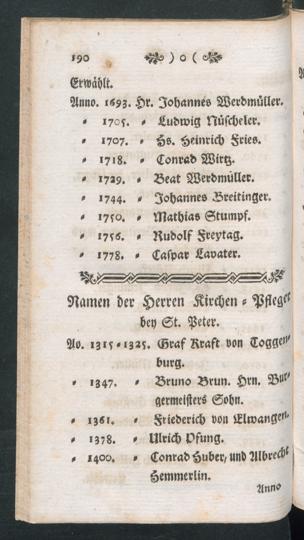 190 ) o (
Erwählt.
Anno. 1693. Hr. Johannes Werdmüller.
" 1705. " Ludwig Nüscheler.
" 1707. " Hs. Heinrich Fries.
" 1718. " Conrad Wirtz.
" 1729. " Beat Werdmüller.
" 1744. " Johannes Breitinger.
" 1750. " Mathias Stumpf.
" 1756. " Rudolf Freytag.
" 1778. " Caspar Lavater.
Namen der Herren Kirchen = Pfleger
bey St. Peter.
Ao. 1315 = 1325. Graf Kraft von Toggen-
burg.
" 1347. " Bruno Brun. Hrn. Bur-
germeisters Sohn.
" 1361. " Friederich von Elwangen.
" 1378. " Ulrich Ofung.
" 1400. " Conrad Huber, und Albrecht
Hemmerlin.
Anno